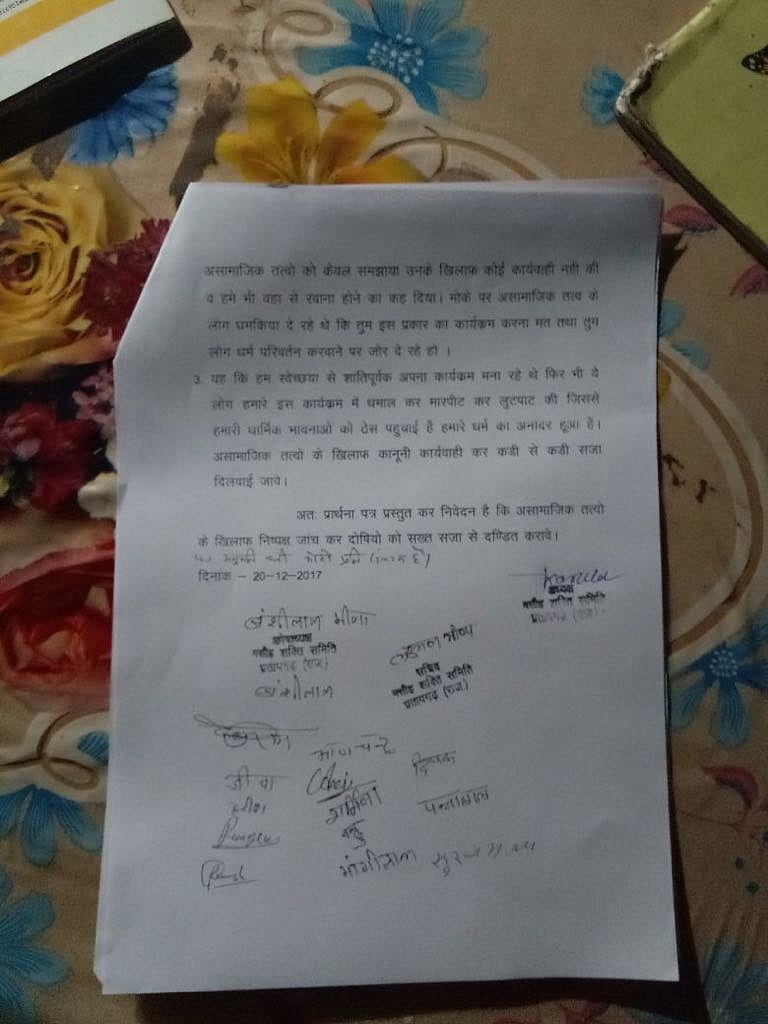 असामाजिक तत्वो को केवल समझाया उनके खिलाफ कोई कार्यवाही नही की
व हमे भी वहा से रवाना होने का कह दिया। मोके पर असामाजिक तत्व के
लोग धमकिया दे रहे थे कि तुम इस प्रकार का कार्यक्रम करना मत तथा तुम
लोग धर्म परिवर्तन करवाने पर जोर दे रहे हो ।
3. यह कि हम स्वेच्छया से शांतिपूर्वक अपना कार्यक्रम मना रहे थे फिर भी वे
लोग हमारे इस कार्यक्रम में धमाल कर मारपीट कर लुटपाट की जिससे
हमारी धार्मिक भावनाओ को ठेस पहुचाई है हमारे धर्म का अनादर हूआ है।
असामाजिक तत्वो के खिलाफ कानूनी कार्यवाही कर कडी से कडी सजा
दिलवाई जावे।
अतः प्रार्थना पत्र प्रस्तुत कर निवेदन है कि असामाजिक तत्वो
के खिलाफ निष्पक्ष जांच कर दोषियो को सख्त सजा से दण्डित करावे।
दिनांक:- 20-12-2017
अध्यक्ष
मसीह शक्ति समिति
प्रतापगढ़ (राज.)
बंशीलाल मीणा
कोषाध्यक्ष
मसीह शक्ति समिति
प्रतापगढ़ (राज.)
बंशीलाल
सचिव
मसीह शक्ति समिति
प्रतापगढ़ (राज.)
दिपक
पन्नालाल
मांगीलाल